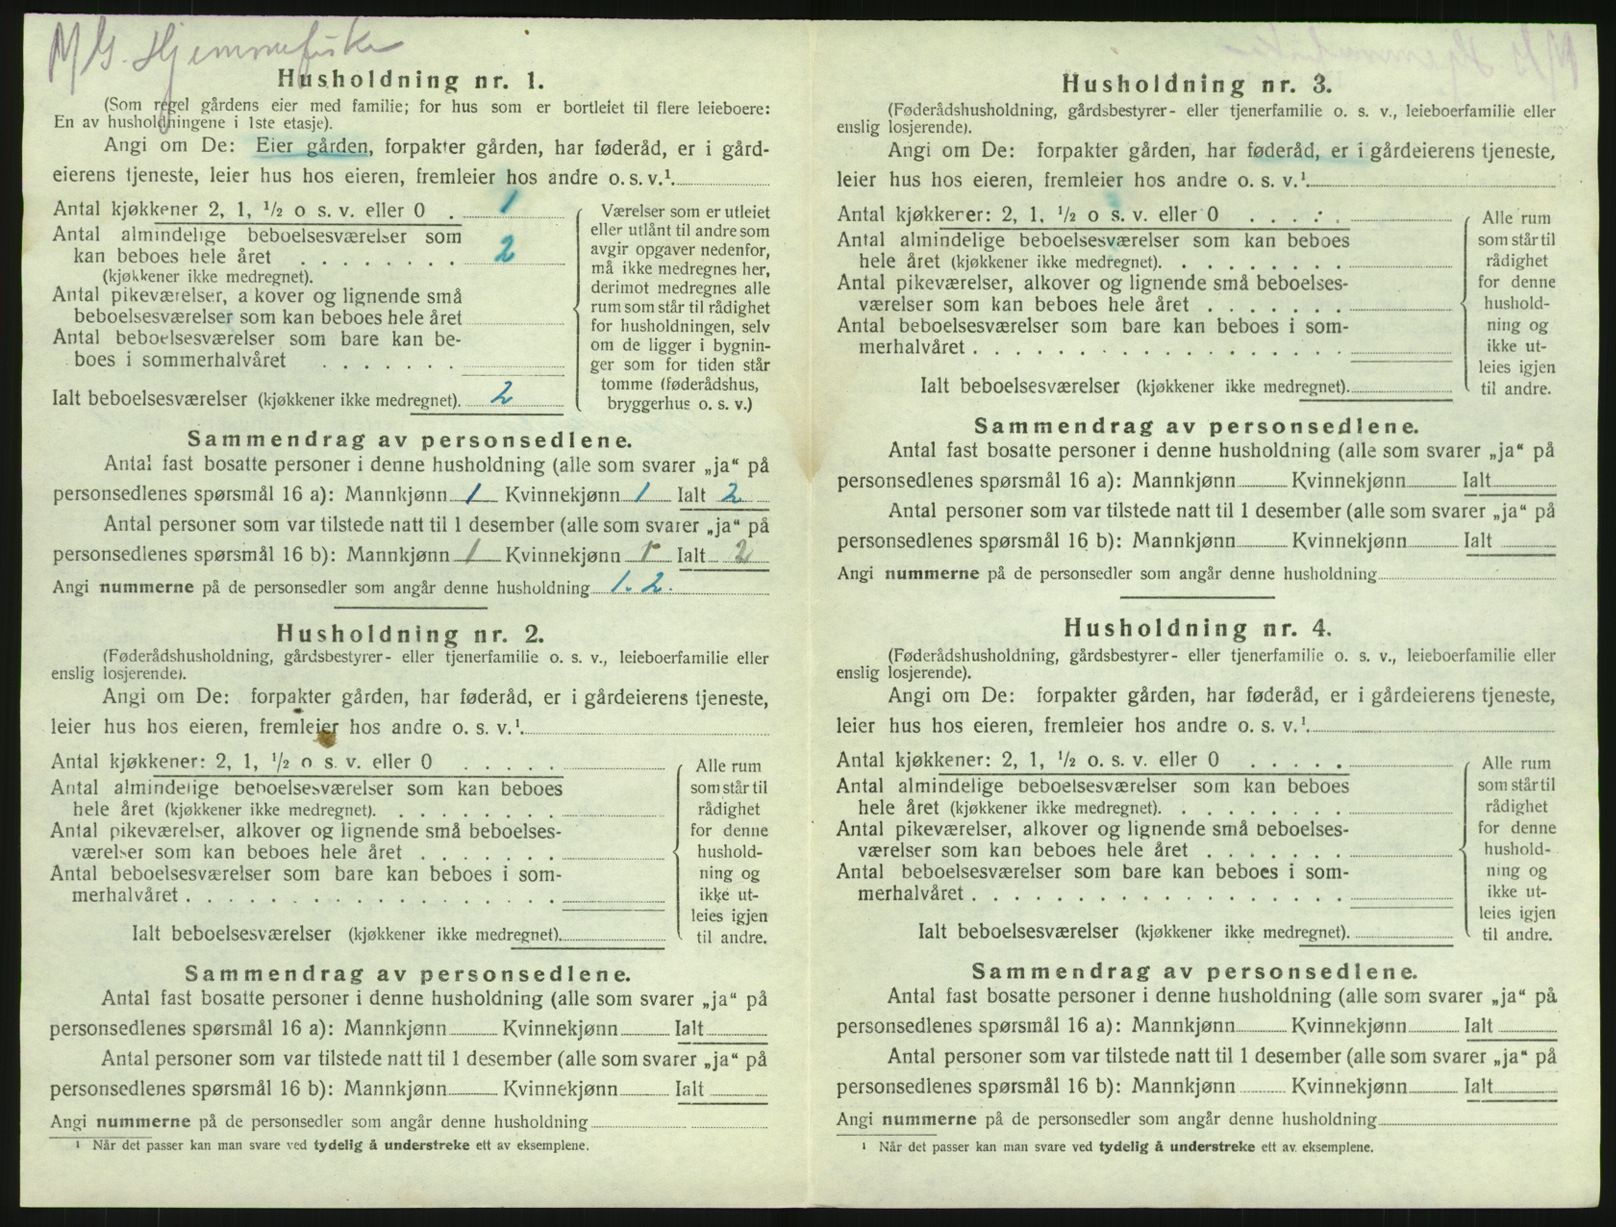 M/G. Hjemmefiske
Husholdning nr. 1.
(Som regel gårdens eier med familie; for hus som er bortleiet til flere leieboere:
En av husholdningene i 1ste etasje).
Angi om De: Eier gården, forpakter gården, har føderåd, er i gård-
eierens tjeneste, leier hus hos eieren, fremleier hos andre o. s. v.¹.
Antal kjøkkener 2, 1, ¹/₂ o s. v. eller 0 . 1
Antal almindelige beboelsesværelser som
kan beboes hele året . . . . . . . . 2
(kjøkkener ikke medregnet).
Antal pikeværelser, a kover og lignende små
beboelsesværelser som kan beboes hele året
Antal beboelsesværelser som bare kan be-
boes i sommerhalvåret . . . . . . .
Ialt beboelsesværelser (kjøkkener ikke medregnet). 2
Værelser som er utleiet
eller utlånt til andre som
avgir opgaver nedenfor,
må ikke medregnes her,
derimot medregnes alle
rum som står til rådighet
for husholdningen, selv
om de ligger i bygnin-
ger som for tiden står
tomme (føderådshus,
bryggerhus o. s. v.)
Sammendrag av personsedlene.
Antal fast bosatte personer i denne husholdning (alle som svarer „ja“ på
personsedlenes spørsmål 16 a): Mannkjønn 1 Kvinnekjønn 1 Ialt 2
Antal personer som var tilstede natt til 1 desember (alle som svarer „ja“ på
personsedlenes spørsmål 16 b): Mannkjønn 1 Kvinnekjønn 1 Ialt 2
Angi nummerne på de personsedler som angår denne husholdning 1. 2.
Husholdning nr. 2.
(Føderådshusholdning, gårdsbestyrer- eller tjenerfamilie o. s. v., leieboerfamilie eller
enslig losjerende).
Angi om De: forpakter gården, har føderåd, er i gårdeierens tjeneste,
leier hus hos eieren, fremleier hos andre o. s. v.¹.
Antal kjøkkener: 2, 1, ¹/₂ o s. v. eller 0 . . . . .
Antal almindelige beboelsesværelser som kan beboes
hele året (kjøkkener ikke medregnet). . . . . . . .
Antal pikeværelser, alkover og lignende små beboelses-
værelser som kan beboes hele året . . . . . . .
Antal beboelsesværelser som bare kan beboes i som-
merhalvåret . . . . . . . . . . . . . . . . . .
Ialt beboelsesværelser (kjøkkener ikke medregnet).
Alle rum
som står til
rådighet
for denne
hushold-
ning og
ikke ut-
leies igjen
til andre.
Sammendrag av personsedlene.
Antal fast bosatte personer i denne husholdning (alle som svarer „ja“ på
personsedlenes spørsmål 16 a): Mannkjønn Kvinnekjønn Ialt
Antal personer som var tilstede natt til 1 desember (alle som svarer „ja“ på
personsedlenes spørsmål 16 b): Mannkjønn Kvinnekjønn Ialt
Angi nummerne på de personsedler som angår denne husholdning
¹ Når det passer kan man svare ved tydelig å understreke ett av eksemplene.
Husholdning nr. 3.
(Føderådshusholdning, gårdsbestyrer- eller tjenerfamilie o. s. v., leieboerfamilie eller
enslig losjerende).
Angi om De: forpakter gården, har føderåd, er i gårdeierens tjeneste,
leier hus hos eieren, fremleier hos andre o. s. v.¹.
Antal kjøkkener: 2, 1, ¹/₂ o s. v. eller 0 . . . . .
Antal almindelige beboelsesværelser som kan beboes
hele året (kjøkkener ikke medregnet). . . . . . . .
Antal pikeværelser, alkover og lignende små beboelses-
værelser som kan beboes hele året . . . . . . .
Antal beboelsesværelser som bare kan beboes i som-
merhalvåret . . . . . . . . . . . . . . . . . .
Ialt beboelsesværelser (kjøkkener ikke medregnet).
Alle rum
som står til
rådighet
for denne
hushold-
ning og
ikke ut-
leies igjen
til andre.
Sammendrag av personsedlene.
Antal fast bosatte personer i denne husholdning (alle som svarer „ja“ på
personsedlenes spørsmål 16 a): Mannkjønn Kvinnekjønn Ialt
Antal personer som var tilstede natt til 1 desember (alle som svarer „ja“ på
personsedlenes spørsmål 16 b): Mannkjønn Kvinnekjønn Ialt
Angi nummerne på de personsedler som angår denne husholdning
Husholdning nr. 4.
(Føderådshusholdning, gårdsbestyrer- eller tjenerfamilie o. s. v., leieboerfamilie eller
enslig losjerende).
Angi om De: forpakter gården, har føderåd, er i gårdeierens tjeneste,
leier hus hos eieren, fremleier hos andre o. s. v.¹.
Antal kjøkkener: 2, 1, ¹/₂ o. s. v. eller 0 . . . . .
Antal almindelige beboelsesværelser som kan beboes
hele året (kjøkkener ikke medregnet). . . . . . . .
Antal pikeværelser, alkover og lignende små beboelses-
værelser som kan beboes hele året . . . . . . .
Antal beboelsesværelser som bare kan beboes i som-
merhalvåret . . . . . . . . . . . . . . . . . .
Ialt beboelsesværelser (kjøkkener ikke medregnet).
Alle rum
som står til
rådighet
for denne
hushold-
ning og
ikke ut-
leies igjen
til andre.
Sammendrag av personsedlene.
Antal fast bosatte personer i denne husholdning (alle som svarer „ja“ på
personsedlenes spørsmål 16 a): Mannkjønn Kvinnekjønn Ialt
Antal personer som var tilstede natt til 1 desember (alle som svarer „ja“ på
personsedlenes spørsmål 16 b): Mannkjønn Kvinnekjønn Ialt
Angi nummerne på de personsedler som angår denne husholdning
¹ Når det passer kan man svare ved tydelig å understreke ett av eksemplene.